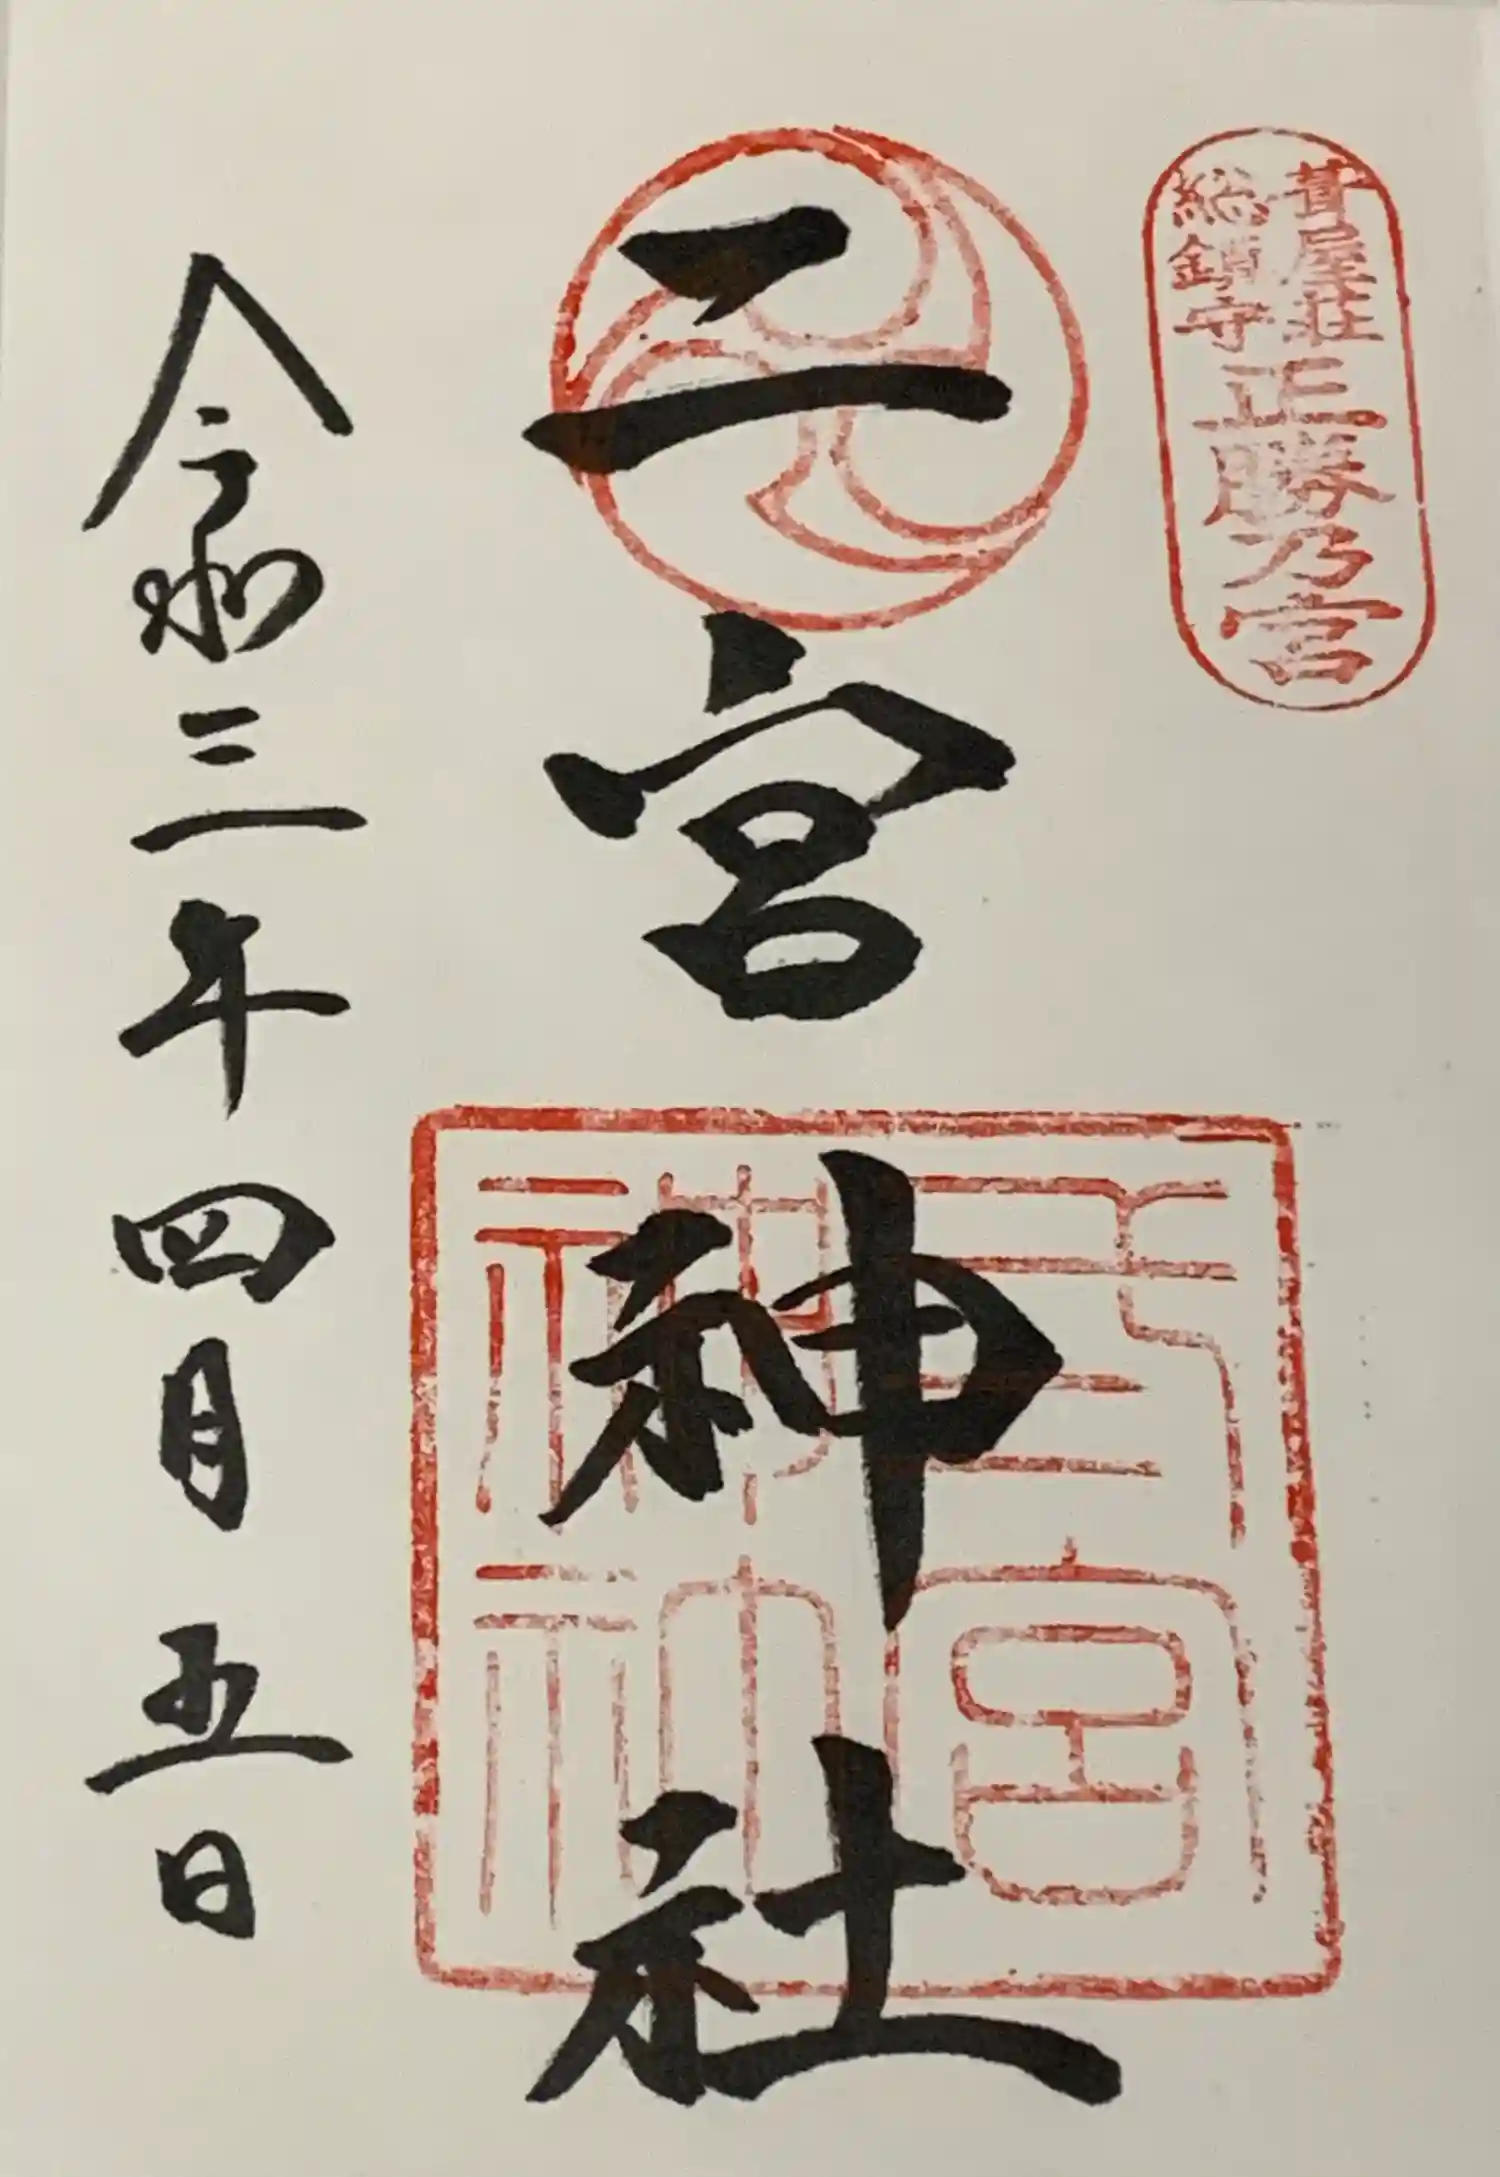 葺屋荘
総鎮守
正勝乃宮
二宮神社
令和三年四月五日